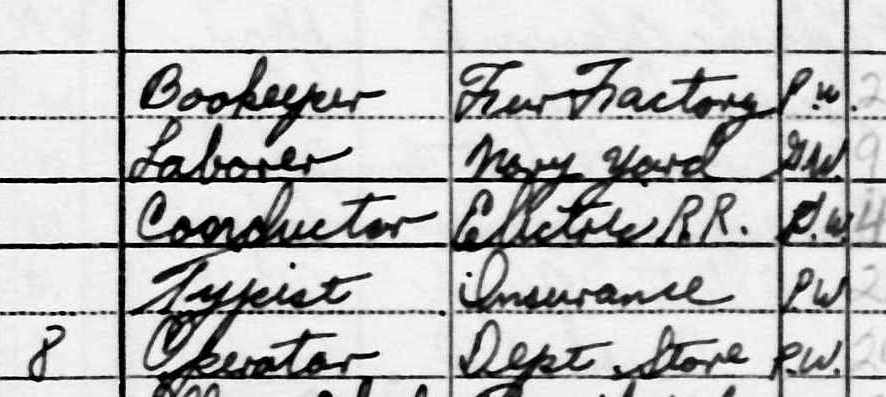 Bookeeper Fur Factory P.W.
Laborer Navy Yard G.W.
Conductor Electric R.R. P.W.
Typist Insurance P.W
8 Operator Dept. Store P.W.